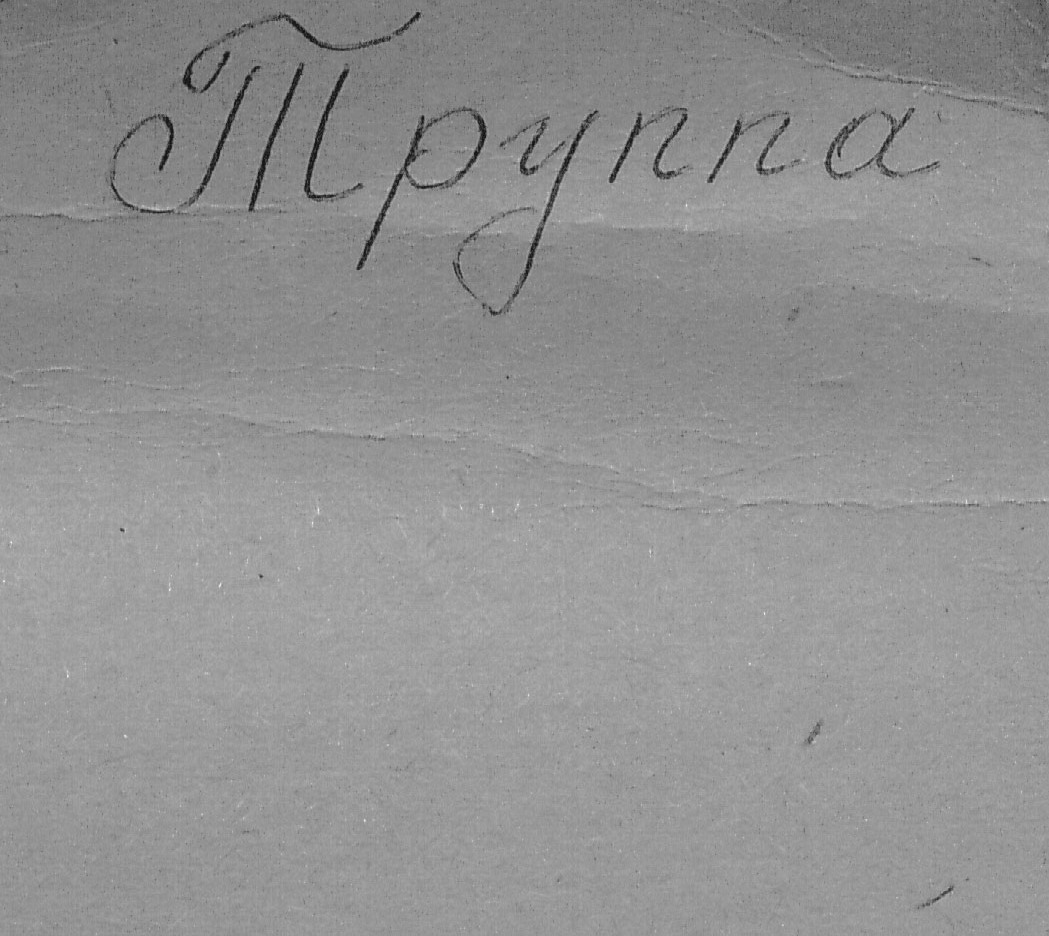 Труппа